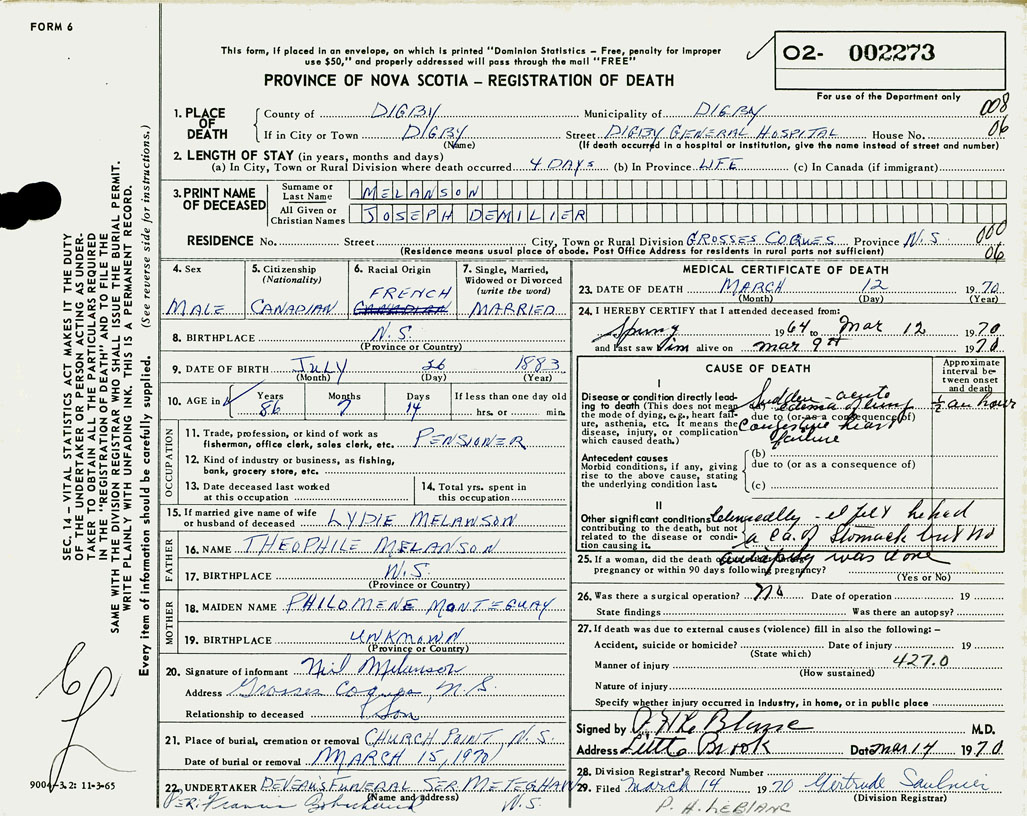 FORM 6
This form, if placed in an envelope, on which is printed "Dominion Statistics – Free, penalty for improper
use $50," and properly addressed will pass through the mail "FREE"
O2- 002273
PROVINCE OF NOVA SCOTIA – REGISTRATION OF DEATH
For use of the Department only
008
06
1. PLACE OF DEATH
County of DIGBY Municipality of DIGBY
If in City or Town DIGBY Street DIGBY GENERAL HOSPITAL House No.
(Name) (If death occurred in a hospital or institution, give the name instead of street and number)
2. LENGTH OF STAY (in years, months and days)
(a) In City, Town or Rural Division where death occurred 4 DAYS (b) In Province LIFE (c) In Canada (if immigrant)
3. PRINT NAME OF DECEASED
Surname or Last Name MELANSON
All Given or Christian Names JOSEPH DEMILIER
RESIDENCE No. Street City, Town or Rural Division GROSSES COQUES Province N.S.
000
06
(Residence means usual place of abode. Post Office Address for residents in rural parts not sufficient)
4. Sex
MALE
5. Citizenship (Nationality)
CANADIAN
6. Racial Origin
FRENCH
CANADIAN
7. Single, Married, Widowed or Divorced (write the word)
MARRIED
8. BIRTHPLACE N.S.
(Province or Country)
9. DATE OF BIRTH JULY 26 1883
(Month) (Day) (Year)
10. AGE in Years 86 Months 7 Days 14 If less than one day old hrs. or min.
OCCUPATION
11. Trade, profession, or kind of work as PENSIONER
fisherman, office clerk, sales clerk, etc.
12. Kind of industry or business, as fishing,
bank, grocery store, etc.
13. Date deceased last worked
at this occupation
14. Total yrs. spent in
this occupation
15. If married give name of wife
or husband of deceased LYDIE MELANSON
FATHER
16. NAME THEOPHILE MELANSON
17. BIRTHPLACE N.S.
(Province or Country)
MOTHER
18. MAIDEN NAME PHILOMENE MONTEGUAY
19. BIRTHPLACE UNKNOWN
(Province or Country)
20. Signature of informant Neil Melanson
Address Grosses Coques, N.S.
Relationship to deceased Son
21. Place of burial, cremation or removal CHURCH POINT, N.S.
Date of burial or removal MARCH 15, 1970
22. UNDERTAKER DEVEAU'S FUNERAL SER. METEGHAN
(Name and address)
PER. N.S.
MEDICAL CERTIFICATE OF DEATH
23. DATE OF DEATH MARCH 12 1970
(Month) (Day) (Year)
24. I HEREBY CERTIFY that I attended deceased from:
Spring 1964 to Mar 12 1970
and last saw him alive on Mar 9th 1970
CAUSE OF DEATH
Approximate interval between onset and death
I
Disease or condition directly leading to death (This does not mean the mode of dying, e.g., heart failure, asthenia, etc. It means the disease, injury, or complication which caused death.)
(a) Sudden - acute
edema of lung ½ an hour
due to (or as a consequence of)
Congestive heart
failure
Antecedent causes
Morbid conditions, if any, giving rise to the above cause, stating the underlying condition last.
(b)
due to (or as a consequence of)
(c)
II
Other significant conditions contributing to the death, but not related to the disease or condition causing it.
Clinically - I felt he had
a ca. of stomach but no
autopsy was done
25. If a woman, did the death occur during
pregnancy or within 90 days following pregnancy?
(Yes or No)
26. Was there a surgical operation? No Date of operation 19
State findings Was there an autopsy?
27. If death was due to external causes (violence) fill in also the following: –
Accident, suicide or homicide? Date of injury 19
(State which)
Manner of injury 427.0
(How sustained)
Nature of injury
Specify whether injury occurred in Industry, in home, or in public place
Signed by P H LeBlanc M.D.
Address Little Brook Date Mar 14 1970
28. Division Registrar's Record Number
29. Filed March 14 1970 Gertrude Saulnier
(Division Registrar)
P. H. LEBLANC
SEC. 14 – VITAL STATISTICS ACT MAKES IT THE DUTY
OF THE UNDERTAKER OR PERSON ACTING AS UNDER-
TAKER TO OBTAIN ALL THE PARTICULARS REQUIRED
IN THE "REGISTRATION OF DEATH" AND TO FILE THE
SAME WITH THE DIVISION REGISTRAR WHO SHALL ISSUE THE BURIAL PERMIT.
WRITE PLAINLY WITH UNFADING INK. THIS IS A PERMANENT RECORD.
Every item of information should be carefully supplied. (See reverse side for instructions.)
9006-3.2: 11-3-65